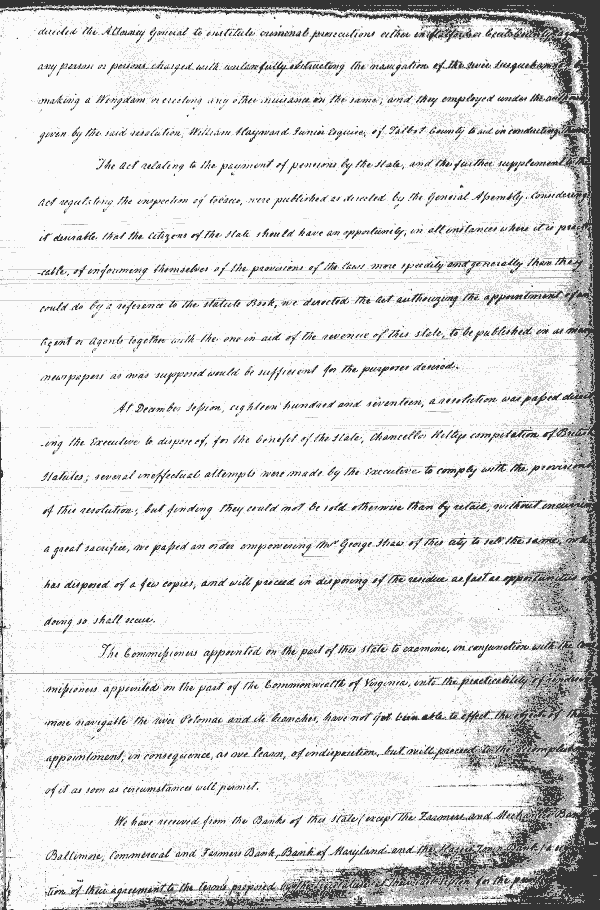 directed the Attorney General to institute criminal prosecutions either in
any person or persons charged with unlawfully obstructing the navigation of the river Susquehanna
making a Wingdam or erecting any other nuisance in the same; and they employed under the
given by the said resolution, William Hayward Junior Esquire, of Talbot County to aid in conducting them
The Act relating to the payment of pensions by the State, and the further supplement to the
Act regulating the inspection of tobacco, were published as directed by the General Assembly. Considering
it desirable that the citizens of the State should have an opportunity, in all instances where it is practi
-cable, of informing themselves of the provisions of the laws more speedily and generally than they
could do by a reference to the Statute Book, we directed the Act authorizing the appointment of an
Agent or Agents together with the one in aid of the revenue of this State, to be published in as many
newspapers as was supposed would be sufficient for the purposes desired.
At December Session, eighteen hundred and seventeen, a resolution was passed direct
ing the Executive to dispose of, for the benefit of the State, Chancellor Kiltys compilation of British
Statutes; several ineffectual attempts were made by the Executive to comply with the provisions
of this resolution; but finding they could not be sold otherwise than by retail, without incurring
a great sacrifice, we passed an order empowering Mr George Shaw of this city to sell the same, who
has disposed of a few copies, and will proceed in disposing of the residue as fast as opportunities of
doing so shall occur.
The Commissioners appointed on the part of this State to examine, in conjunction with the Com
missioners appointed on the part of the Commonwealth of Virginia, into the practicability of rendering
more navigable the river Potomac and its branches, have not yet been able to effect the object of their
appointment, in consequence, as we learn, of indisposition, but will proceed to the accomplishment
of it as soon as circumstances will permit.
We have received from the Banks of this State (except the Farmers and Mechanics Bank
Baltimore, Commercial and Farmers Bank, Bank of Maryland and the
tion of their agreement to the terms proposed for the